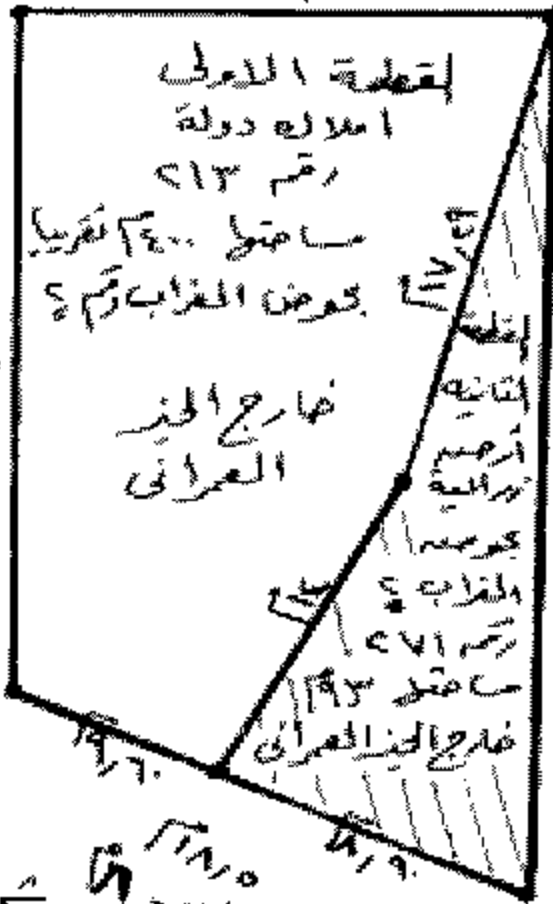 القطعة الاولى
املاك دولة
رقم ٢١٣
مساحتها ٤٠٠م٢ تقريبا
بحوض الغراب رقم ٤
خارج الحيز
العمرانى
١٧,٤٩
القطعة
الثانيه
أرض
زراعية
بحوض
الغراب ٤
رقم ٢٧١
مساحتها ٩٣م٢
خارج الحيز العمرانى
٩,٦٠م
٨,٩٠م
١٨,٥م